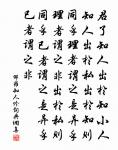 君子知人出於知小人
知人出於私出於知則
同乎理者謂之是異乎
理者謂之非出於私則
同乎己者謂之是異乎
己者謂之非
邵雍知人吟